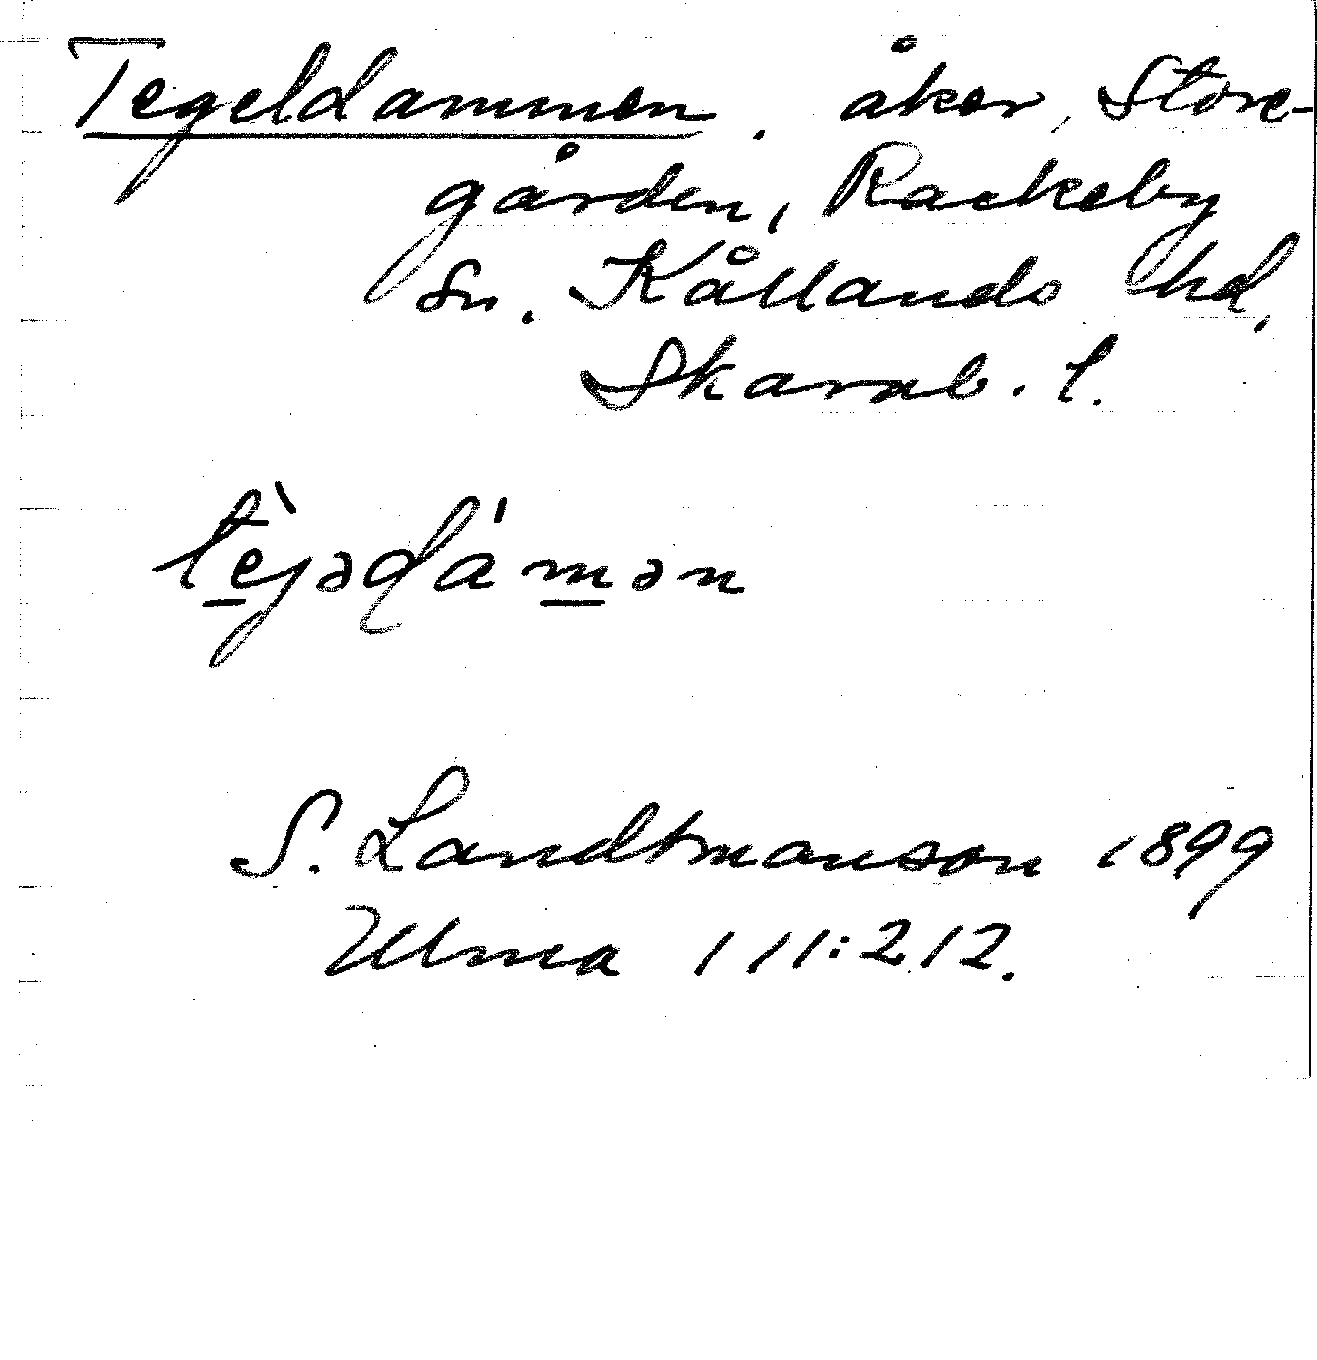 Tegeldammen. åker, Store-
gården, Rackeby
sn. Kållands hd.
Skarab. l.
tè̲jəɖám̲ən
S. Landtmanson 1899
Ulma 111:212.